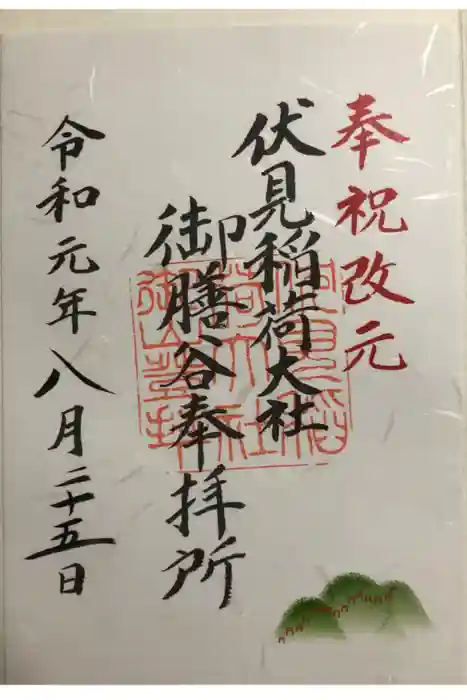 奉祝改元
伏見稲荷大社
御膳谷奉拝所
令和元年八月二十五日